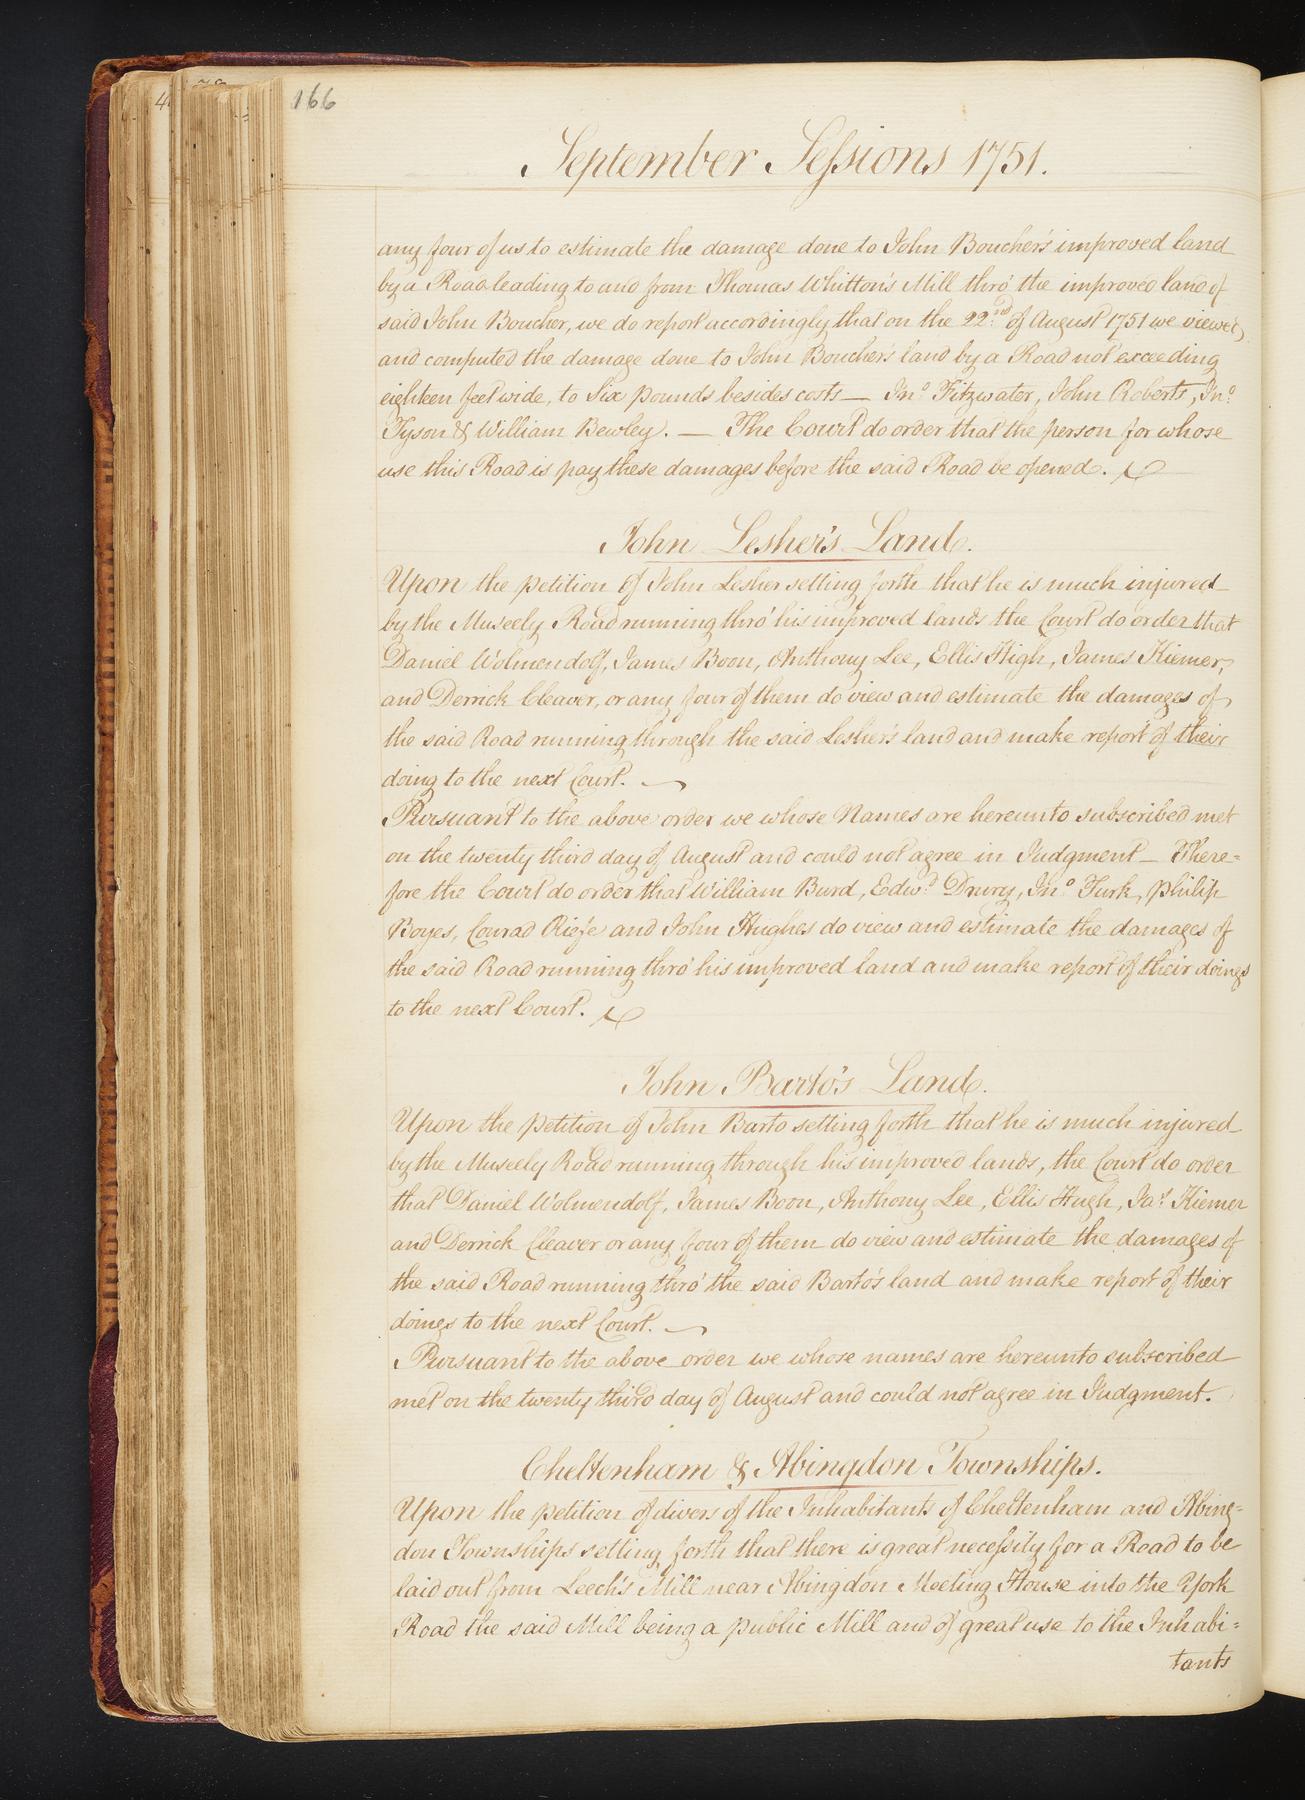 166
September Sessions 1751.
any four of us to estimate the damage done to John Boucher's improved land
by a Road leading to and from Thomas Whitton's Mill thro' the improved land of
said John Boucher, we do report accordingly that on the 22nd of August 1751 we viewed
and computed the damage done to John Boucher's land by a Road not exceeding
eighteen feet wide, to Six pounds besides costs — Jno Fitzwater, John Roberts, Jno
Tyson & William Bewley. — The Court do order that the person for whose
use this Road is pay these damages before the said Road be opened.
John Lesher's Land.
Upon the petition of John Lesher setting forth that he is much injured
by the Museely Road running thro' his improved lands the Court do order that
Daniel Wolmendolf, James Boon, Anthony Lee, Ellis High, James Kiemer,
and Derrick Cleaver, or any four of them do view and estimate the damages of
the said Road running through the said Lesher's land and make report of their
doing to the next Court. —
Pursuant to the above order we whose Names are hereunto subscribed met
on the twenty third day of August and could not agree in Judgment — There=
fore the Court do order that William Burd, Edwd Drury, Jno Turk, Philip
Boyes, Conrad Riefe and John Hughes do view and estimate the damages of
the said Road running thro' his improved land and make report of their doings
to the next Court.
John Barto's Land.
Upon the petition of John Barto setting forth that he is much injured
by the Museely Road running through his improved lands, the Court do order
that Daniel Wolmendolf, James Boon, Anthony Lee, Ellis Hugh, Jas Kiemer
and Derrick Cleaver or any four of them do view and estimate the damages of
the said Road running thro' the said Barto's land and make report of their
doings to the next Court. —
Pursuant to the above order we whose names are hereunto subscribed
met on the twenty third day of August and could not agree in Judgment.
Cheltenham & Abingdon Townships.
Upon the petition of divers of the Inhabitants of Cheltenham and Abing=
don Townships setting forth that there is great necessity for a Road to be
laid out from Leech's Mill near Abingdon Meeting House into the York
Road the said Mill being a public Mill and of great use to the Inhabi=
tants